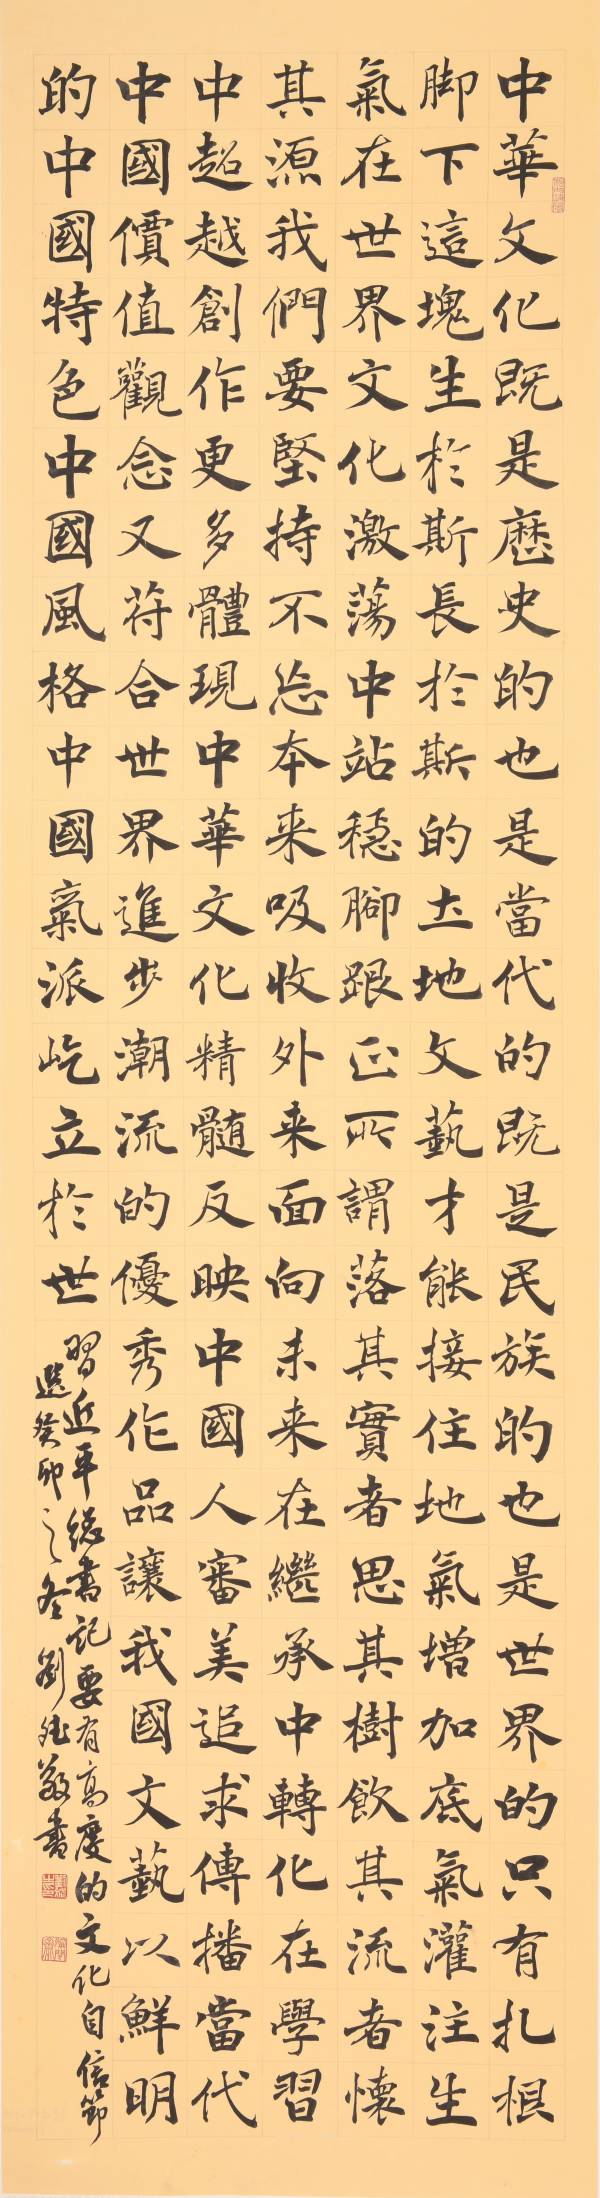 中華文化既是歷史的也是當代的既是民族的也是世界的只有扎根
脚下這塊生於斯長於斯的土地文藝才能接住地氣增加底氣灌注生
氣在世界文化激蕩中站穩腳跟正所謂落其實者思其樹飲其流者懷
其源我們要堅持不忘本来吸收外来面向未来在繼承中轉化在學習
中超越創作更多體現中華文化精髓反映中國人審美追求傳播當代
中國價值觀念又符合世界進步潮流的優秀作品讓我國文藝以鮮明
的中國特色中國風格中國氣派屹立於世
習近平總書記要有高度的文化自信節
選癸卯之冬劉敬書